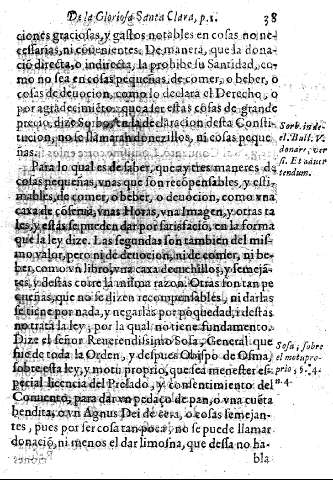 De la Gloriosa Santa Clara, p.1. 38
ciones graciosas, y gastos notables en cosas no ne-
cessarias, ni cõuenientes. De manera, que la dona-
ció directa, o indirecta, la prohibe su Santidad, co-
mo no sea en cosas pequeñas, de comer, o beber, ó
cosas de deuocion, como lo declara el Derecho, o
por agradecimiẽto: que a ser estas cosas de grande
precio, dize Sorbo, en la declaracion desta Consti-
tucion, no se llamarán donezillos, ni cosas peque
ñas.
Sorb. in de-
el. Bull. V.
donare, ver
s. Et aduer
tendum.
Para lo qual es de saber, que ay tres maneres de
cosas pequeñas, vnas que son recõpensables, y esti-
mables, de comer, o beber, o deuocion, como vna
caxa de cõserua, vnas Horas, vna Imagen, y otras ta
les, y estas se pueden dar por satisfació, en la forma
que la ley dize. Las segundas son tambien del mis-
mo valor, pero ni de deuocion, ni de comer, ni be-
ber, como vn libro, vna caxa de cuchillos, y semejã-
tes, y destas corre la misma razon. Otras son tan pe
queñas, que no se dizen recompensables, ni darlas
se tiene por nada, y negarlas por poquedad, i destas
no trata la ley; por la qual no tiene fundamento.
Dize el señor Reuerendissimo Sosa, General que
fue de toda la Orden, y despues Obispo de Osma,
sobre esta ley, y motu proprio, que sea menester es-
pecial licencia del Prelado, y consentimiento del
Conuento, para dar vn pedaço de pan, o vna cuẽta
bendita, o vn Agnus Dei de cera, o cosas semejan-
tes, pues por ser cosa tan poca, no se puede llamar
donació, ni menos el dar limosna, que dessa no ha-
Sosa, sobre
el motu pro-
prio, §. 4.
n. 4.
bla